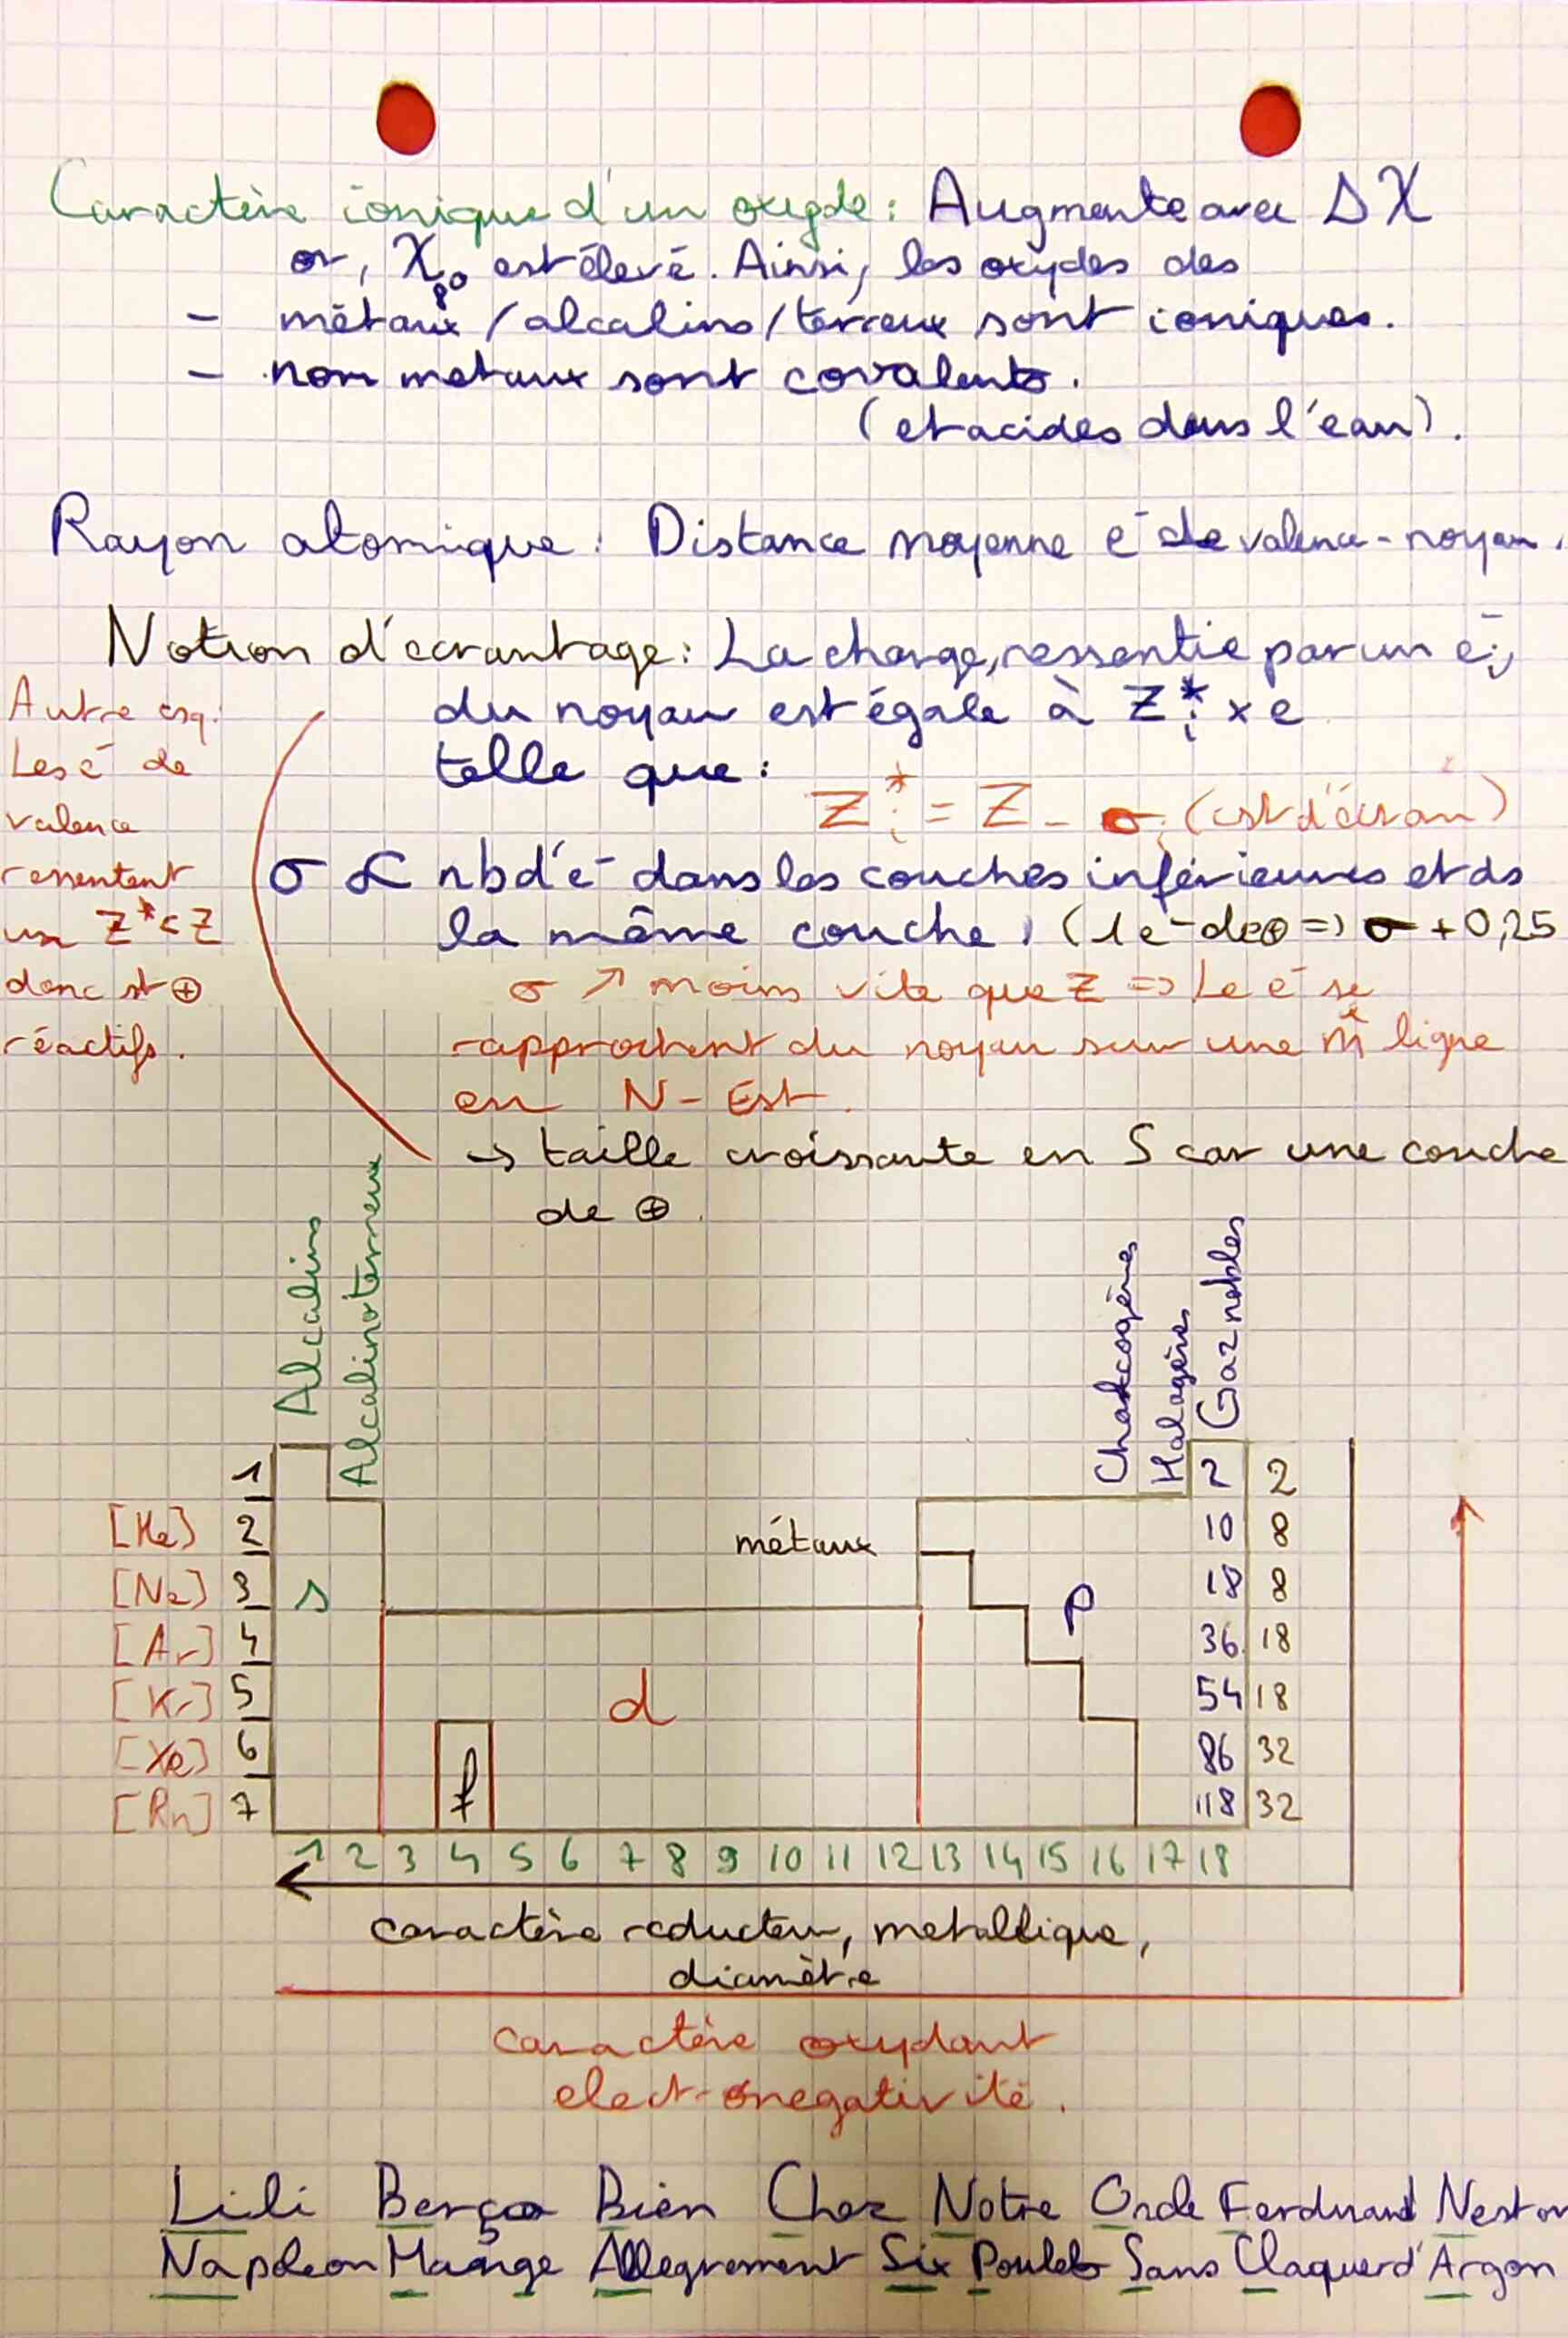 Caractère ionique d'un oxyde : Augmente avec ΔX
or, X₀ est élevé. Ainsi, les oxydes des
- métaux / alcalins / terreux sont ioniques.
- non metaux sont covalents.
(et acides dans l'eau).
Rayon atomique : Distance moyenne e⁻ de valence - noyau.
Notion d'écrantage : La charge, ressentie par un e⁻ᵢ,
du noyau est égale à Zᵢ* × e
telle que :
Zᵢ* = Z - σᵢ (cst d'écran)
σ ∝ nb d'e⁻ dans les couches inférieures et ds
la même couche, (1 e⁻ de ⊕ => σ + 0,25
σ ↗ moins vite que Z => Le e⁻ se
rapprochent du noyau sur une m̂ ligne
en N-Est.
→ taille croissante en S car une couche
de ⊕.
Autre csq :
Les e⁻ de
valence
ressentent
un Z* < Z
donc st ⊕
réactifs.
Alcalins
Alcalinoterreux
Chalcogènes
Halogènes
Gaz nobles
1 2 2
[He] 2 métaux 10 8
[Ne] 3 s p 18 8
[Ar] 4 36 18
[Kr] 5 d 54 18
[Xe] 6 f 86 32
[Rn] 7 118 32
1 2 3 4 5 6 7 8 9 10 11 12 13 14 15 16 17 18
caractère reducteur, metallique,
diamètre
caractère oxydant
electronegativité.
Lili Berça Bien Chez Notre Oncle Ferdinand Nestor
Napoleon Mange Allegrement Six Poulets Sans Claquer d'Argon